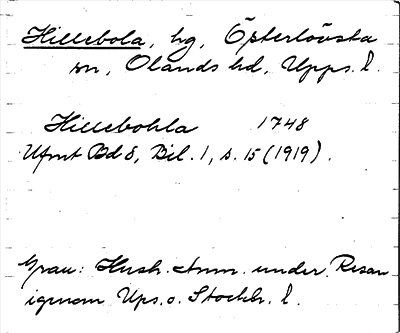 Hillebola, hg, Österlövsta
sn, Olands hd, Upps. l.
Hillebohla 1748
Ufmt Bd 8, Bil. 1, s. 15 (1919).
Hush. Ann. under Resan
igenom Ups. o. Stockh. l.